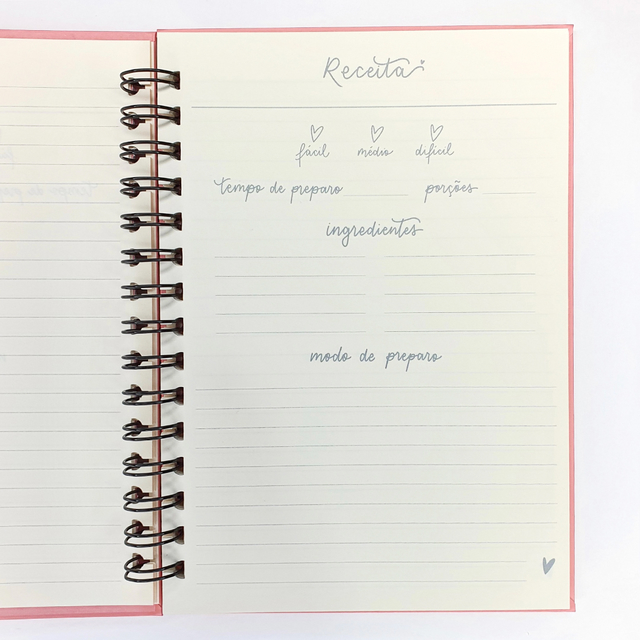 Receita
fácil médio difícil
tempo de preparo porções
ingredientes
modo de preparo